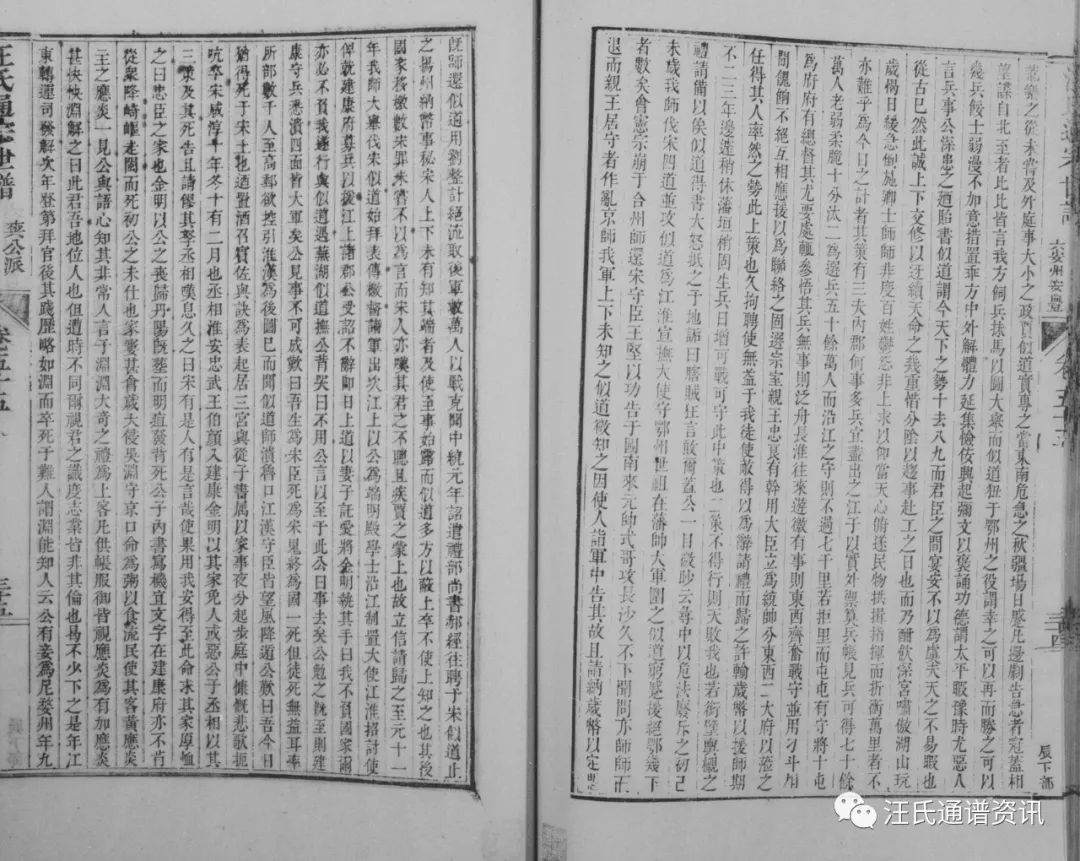 荒樂之從未嘗及外庭事大小之政賈似道實專之當東南危急之秋疆場日蹙凡邊劄告急者冠蓋相
望諜自北至者比比皆言我方飼兵秣馬以圖大舉而似道狃于鄂州之役謂幸之可以再而勝之可以
幾兵餒士弱漫不加意措置乖方中外解體力延集憸佞興起彌文以褒誦功德謂太平暇豫時尤惡人
言兵事公深患之迺貽書似道謂今天下之勢十去八九而君臣之間宴安不以為虞夫天之不易暇也
從古已然此誠上下交修以迓續天命之幾重惜分陰以趨事赴工之日也而乃酣飲深宮嘯傲湖山玩
歲愒日緩急倒施卿士師師非度百姓鬱怨非上求以仰當天心俯遂民物拱揖指揮而折衝萬里者不
亦難乎為今日之計者其策有三夫內郡何事多兵宜盡出之江干以實外禦算兵帳見兵可得七十餘
萬人老弱柔脆十分汰二為選兵五十餘萬人而沿江之守則不過七千里若拒里而屯屯有守將十屯
為府府有總督其尤要處輒參悟其兵無事則泛舟長淮往來遊徼有事則東西齊奮戰守並用刁斗相
聞餽餉不絕互相應援以為聯絡之固選宗室親王忠良有幹用大臣立為統帥分東西二大府以蒞之
任得其人率然之勢此上策也久拘聘使無益于我徒使敵得以為辭請禮而歸之許輸歲幣以援師期
不二三年邊遽稍休藩垣稍固生兵日增可戰可守此中策也二策不得行則天敗我也若銜璧輿櫬之
禮請備以俟似道得書大怒抵之于地詬曰瞎賊狂言敢爾蓋公一目微眇云尋中以危法廢斥之初己
未歲我師伐宋四道並攻似道為江淮宣撫大使守鄂州世祖在潘帥大軍圍之似道窮蹙援絕鄂幾下
者數矣會憲宗崩于合州師還宋守臣王堅以功告于國南來元帥弍哥攻長沙久不下聞間亦師師而
退而親王居守者作亂京師我軍上下未知之似道微知之因使人詣軍中告其故且請納歲幣以定盟
汪氏通宗世譜
六安州安豐
卷五十五
三十四
辰下部
既師還似道用劉整計絕流取後軍數萬人以戰克聞中統元年詔遣禮部尚書郝經往聘于宋似道止
之揚州納幣事秘宋人上下未有知其端者及使至事始露而似道多方以蔽上卒不使上知之也其後
國家移檄數宋罪未嘗不以為言而宋人亦嘆其君之不聰且疾賈之蒙上也故立信請歸之至元十一
年我師大舉伐宋似道始拜表傳檄督諸軍出次江上以公為端明殿學士沿江制置大使江淮招討使
俾就建康府募兵以援江上諸郡公受詔不辭即日上道以妻子託愛將金明執其手曰我不負國家爾
亦必不負我遂行與似道遇蕪湖似道撫公背哭曰不用公言以至于此公曰事去矣公勉之既至則建
康守兵悉潰四面皆大軍矣公見事不可成歎曰吾生為宋臣死為宋鬼終為國一死但徒死無益耳率
所部數千人至高郵欲控引淮漢為後圖已而聞似道師潰魯口江漢守臣皆望風降遁公歎曰吾今日
猶得死于宋土也迺置酒召賓佐與訣為表起居三宮與從子書属以家事夜分起步庭中慷慨悲歌扼
吭卒宋咸淳十年冬十有二月也丞相淮安忠武王伯顏入建康金明以其家免人或惡公于丞相以其
三策及其死告且請僇其孥丞相嘆息久之曰宋有是人有是言哉使果用我安得至此命求其家厚恤
之曰忠臣之家也金明以公之喪歸丹陽既塟而明疽發背死公子內書寫機宜文字在建康府亦不肯
從眾降崎嶇走閩而死初公之未仕也家窶甚會歲大侵吳淵守京口命為粥以食流民使其客黃應炎
主之應炎一見公與語心知其非常人言于淵淵大奇之禮為上客凡供帳服御皆視應炎為有加應炎
甚怏怏淵解之曰此君吾地位人也但遭時不同爾視君之識度志業皆非其倫也曷不少下之是年江
東轉運司發解次年登第拜官後其踐歷略如淵而卒死于難人謂淵能知人云公有妾為尼婺州年九
汪氏通宗世譜
爽公派
卷五十五
三十五
汪氏通谱资讯